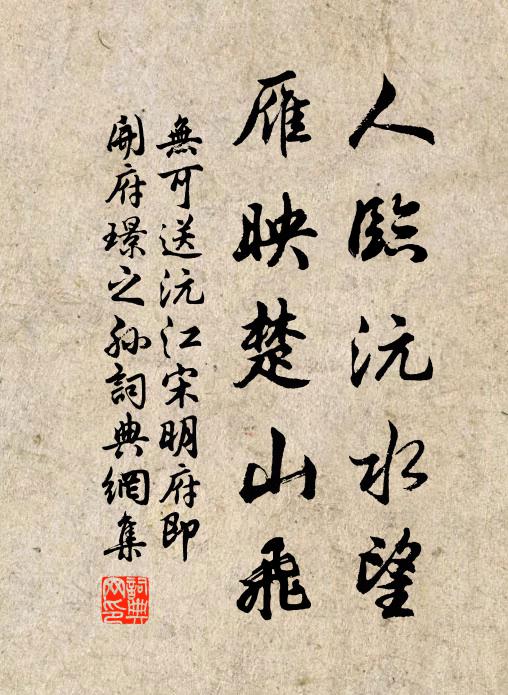 人臨沅水望
雁映楚山飛
無可送沅江宋明府即
開府璟之孫詞典網集
詞典網印